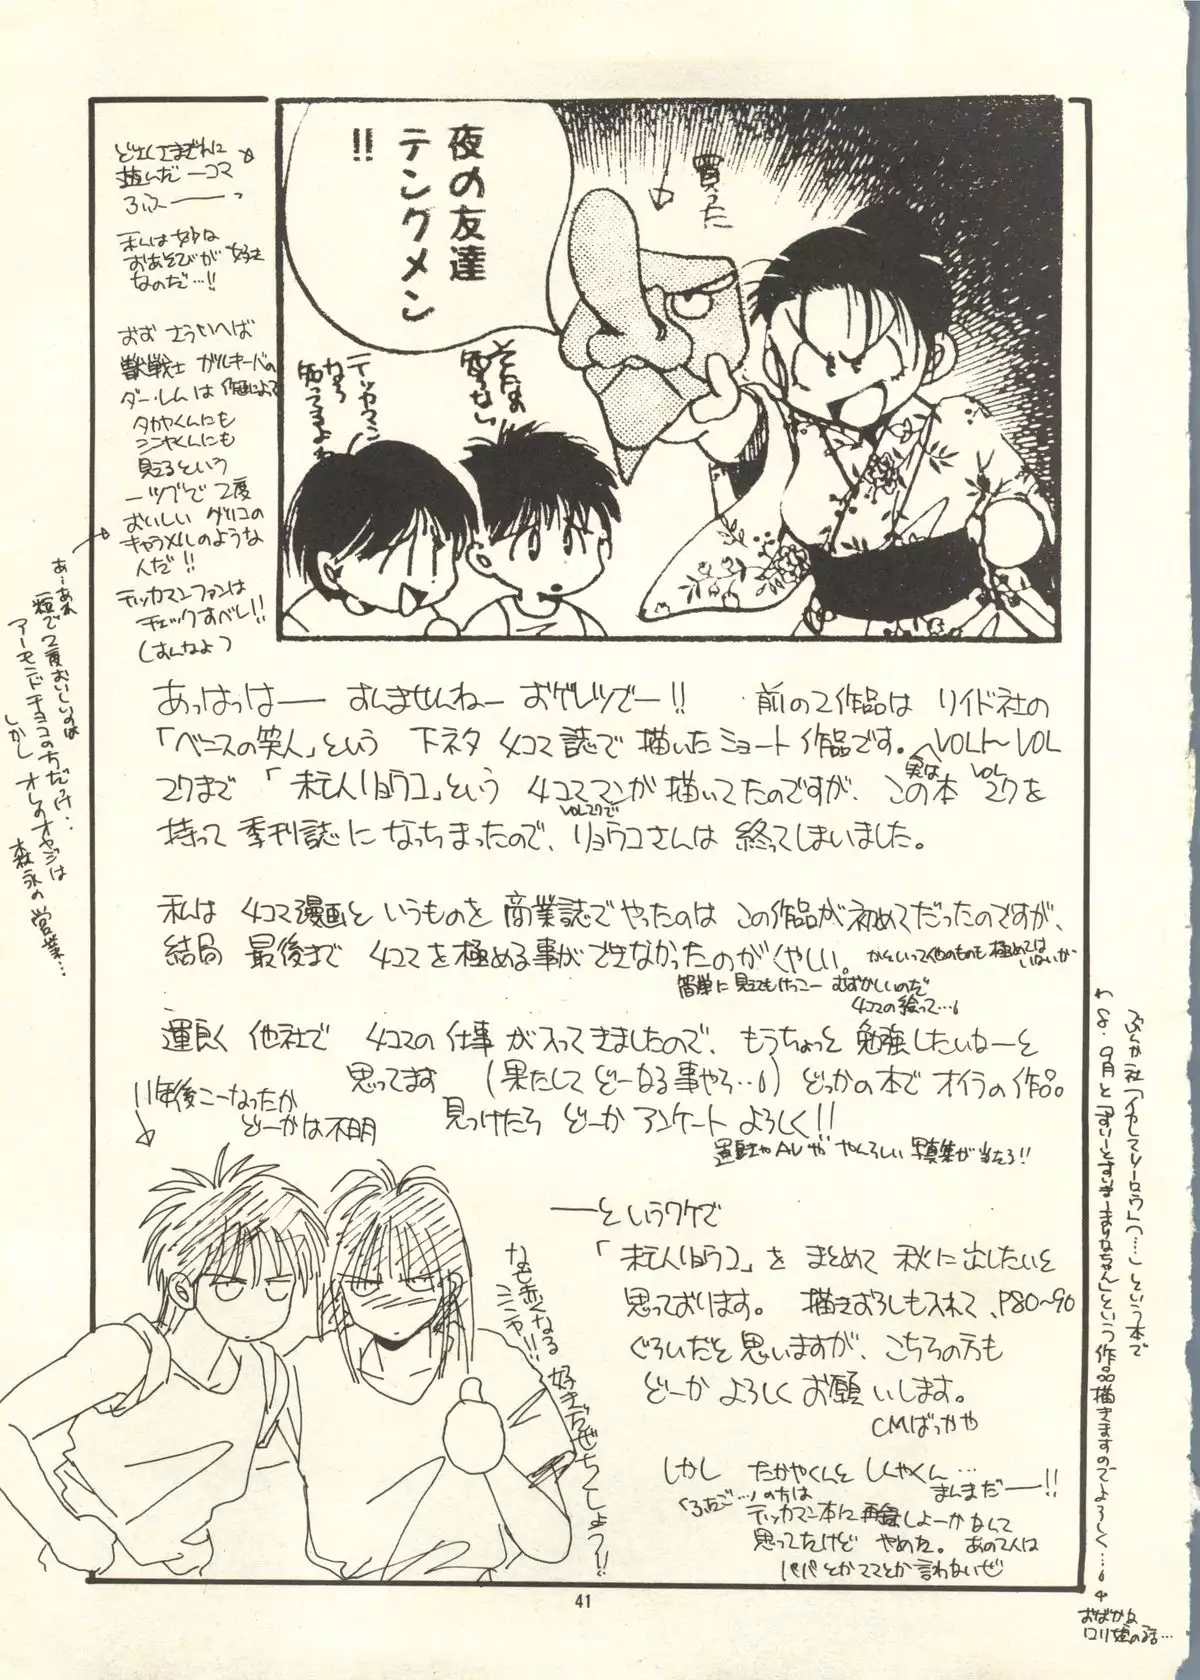 夜の友達
テングメン
!!
買った
そんなの
知らない
テッカマン
なら
知ってるよね
どさくさまぎれに
挟んだ一コマ
ふふ——っ
私は妙な
おあそびが好き
なのだ…!!
おお さういへば
獣戦士 ガルキーバの
ダールムは 作画によって
タカヤくんにも
シンヤくんにも
見えるという
一ツブで 2度
おいしい グリコの
キャラメルのような
んだ!!
テッカマンファンは
チェックすべし!!
あーあれ
一粒で2度おいしいのは
アーモンドチョコの方だっけ…
しかし オレのオヤジは
森永の営業…
あっはっはー— すんませんねー おゲレツでー!! 前の2作品は リイド社の
「ベニスの笑人」という 下ネタ 4コマ誌で描いたショート作品です。VOL1〜VOL
27まで「未亡人リョウコ」という 4コママンガ描いてたのですが、実は この本 VOL 27を
持って 季刊誌に なっちまったので、VOL27で リョウコさんは 終ってしまいました。
私は 4コマ漫画というものを 商業誌でやったのは この作品が初めてだったのですが、
結局 最後まで 4コマを極める事ができなかったのがくやしい。
簡単に 見えてもけっこー むずかしいのだ
4コマの絵って…
運良く 他社で 4コマの仕事が入ってきましたので、もうちょっと 勉強したいなーと
思ってます (果たして どーなる事やら…) どっかの本で オイラの作品
見つけたら どーか アンケート よろしく!!
写真集が当たる!!
11年後こーなったか
どーかは不明
——というワケで
「未亡人リョウコ」を まとめて 秋に出したいと
思っております。 描きおろしも入れて、P80〜90
ぐらいだと 思いますが、こちらの方も
どーか よろしくお願いします。
CMばっかや
なぜ赤くなる
シンヤ!!
好きだぜちくしょう!!
しかし たかやくんと しんやくん…
まんまだ——!!
(ふたご…)の方は
テッカマン本に 再録しよーかなって
思ってたけど やめた。あの2人は
パパとかママとか言わないぜ
という本で
9月と
という作品描きますのでよろしく…
おばかな
ロリ姫の話…
41